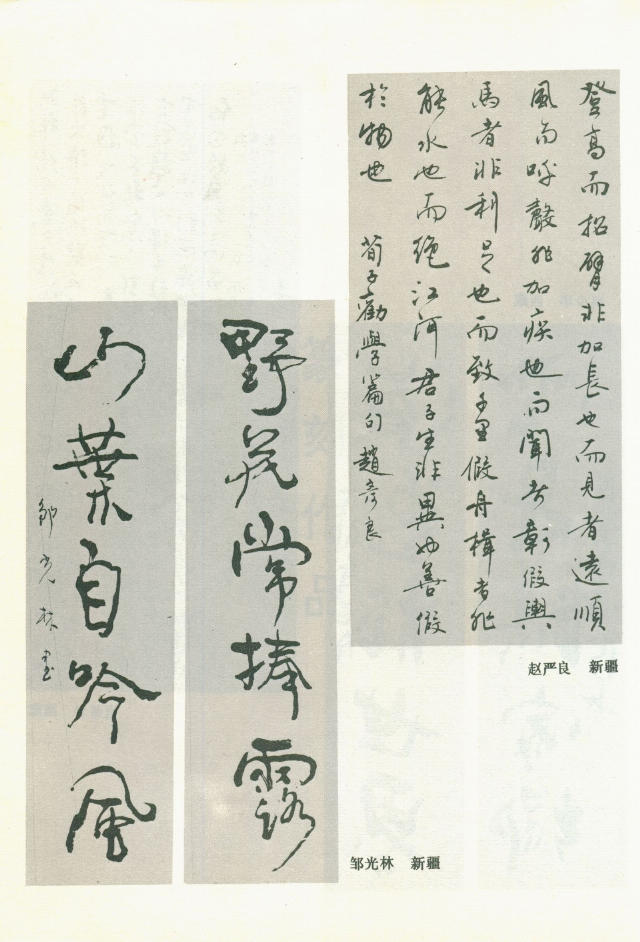 登高而招臂非加長也而見者遠順
風而呼聲非加疾也而聞者彰假輿
馬者非利足也而致千里假舟楫者非
能水也而絶江河君子生非異也善假
於物也 荀子勸學篇句 趙彦良
赵严良 新疆
野花常捧露
山葉自吟風
鄒光林書
邹光林 新疆